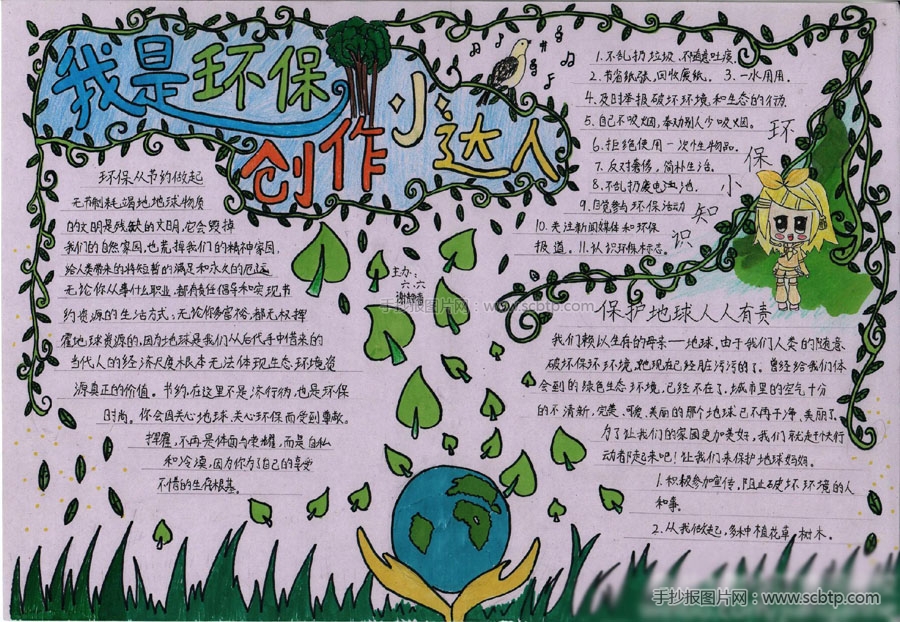 我是环保
创作小达人
环保从节约做起
无节制耗竭地地球物质
的文明是残缺的文明,它会毁掉
我们的自然家园,也荒掉我们的精神家园,
给人类带来的将短暂的满足和永久的厄运
无论你从事什么职业,都有责任倡导和实现节
约资源的生活方式,无论你多富裕,都无权挥
霍地球资源的,因为地球是我们从后代手中借来的
当代人的经济尺度根本无法体现生态环境资
源真正的价值。节约,在这里不是流行病,也是环保
时尚。你会因关心地球、关心环保而受到尊敬。
挥霍,不再是体面与荣耀,而是自私
和冷漠,因为你为了自己的享受
不惜的生存根基。
主办:
六.六
1.不乱扔垃圾,不随意吐痰。
2.节省纸张,回收废纸。 3.一水用用。
4.及时举报破坏环境和生态的行动
5.自己不吸烟,奉劝别人少吸烟。
6.拒绝使用一次性物品.
7.反对奢侈,简朴生活。
8.不乱扔废电池池.
9.自觉参与环保活动
10.关注新闻媒体和环保
报道。11.认识环保标志。
环保小知识
手抄报图片网:www.scbtp.com
保护地球人人有责
我们赖以生存的母亲——地球,由于我们人类的随意
破坏保环环境,她现在已经脏污污的了。曾经给我们体
会到的绿色生态环境,已经不在了,城市里的空气十分
的不清新,完美、可爱、美丽的那个地球已不再干净、美丽了、
为了让我们的家园更加美好,我们就赶快行
动者都走起来吧!让我们来保护地球妈妈。
1.积极参加宣传,阻止破坏环境的人
和事。
2.从我做起,多种植花草、树木。
手抄报图片网:www.scbtp.com